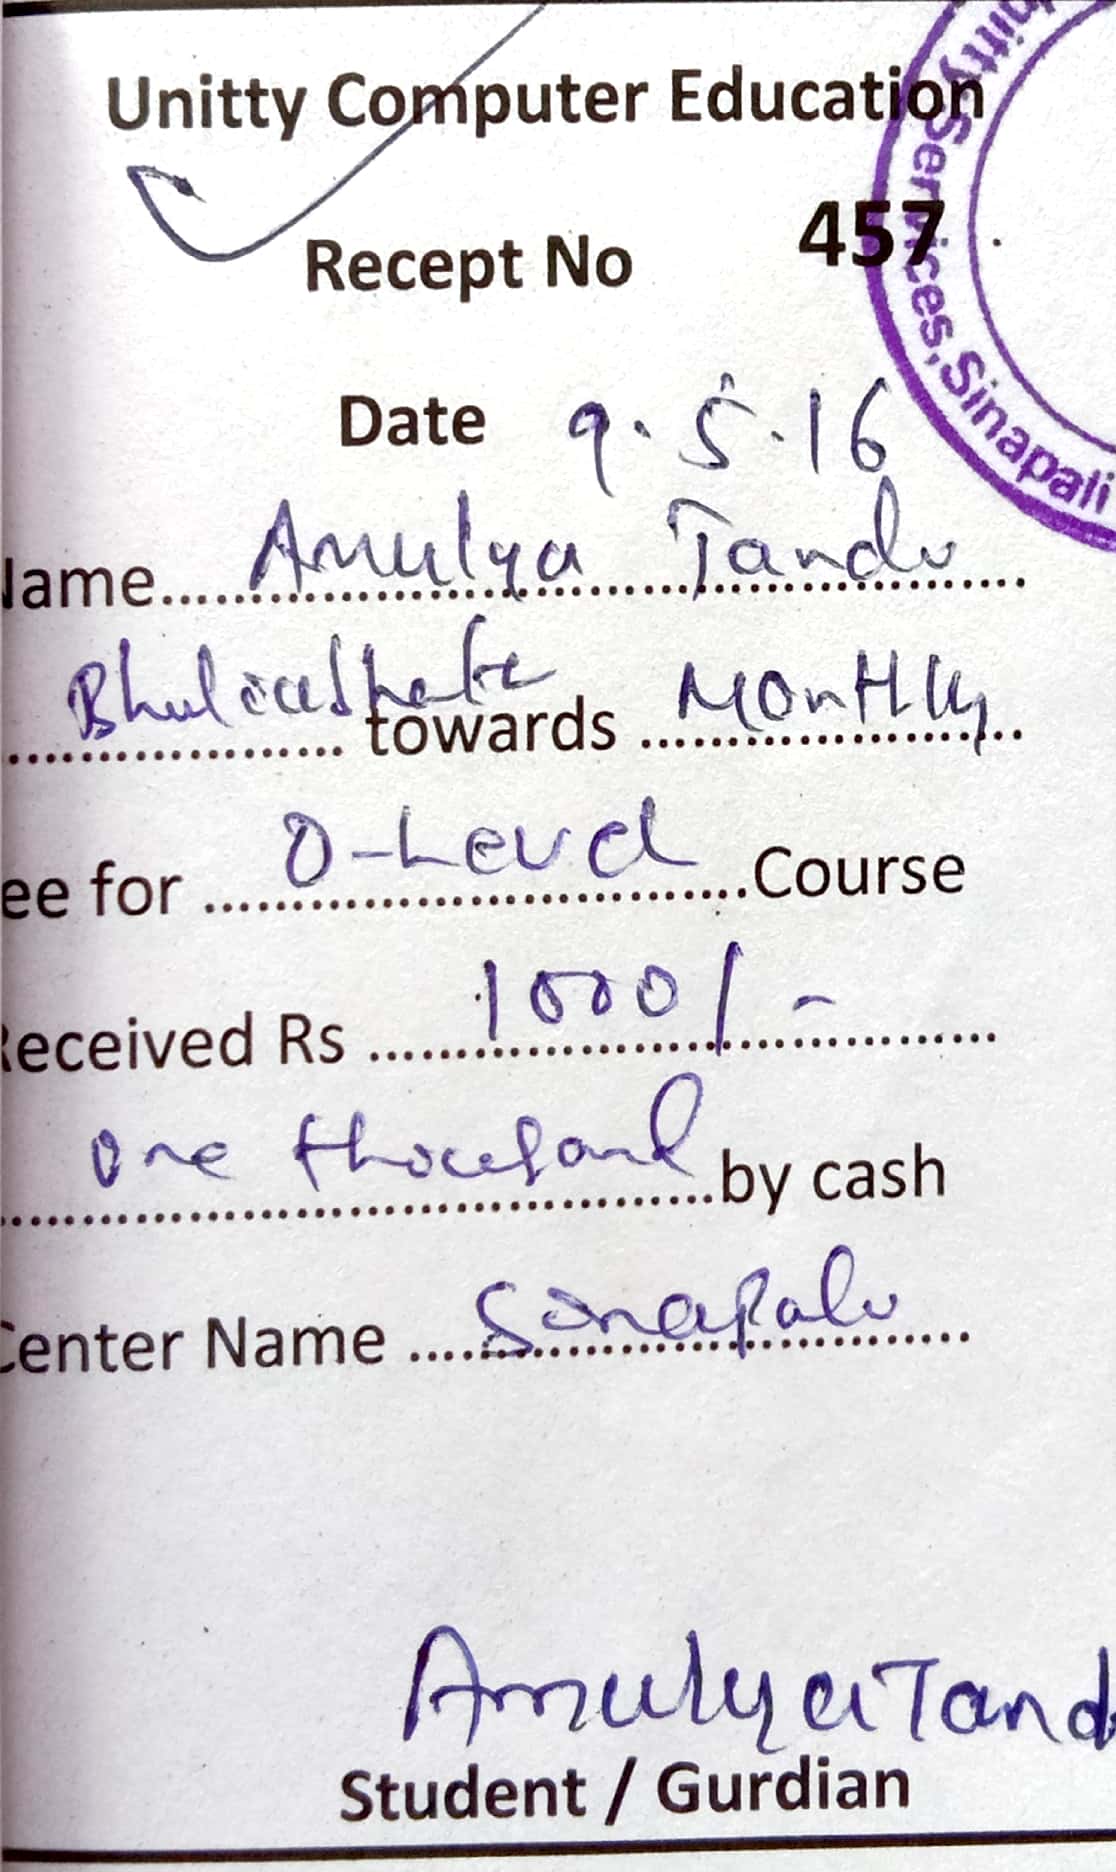 Unitty Computer Education
Recept No 457
Unitty Services, Sinapali
Date 9.5.16
Name Amulya Tandi
towards Monthly
ee for O-Level Course
Received Rs 1000/-
One thousand by cash
Center Name Sinapali
Amulya Tand
Student / Gurdian